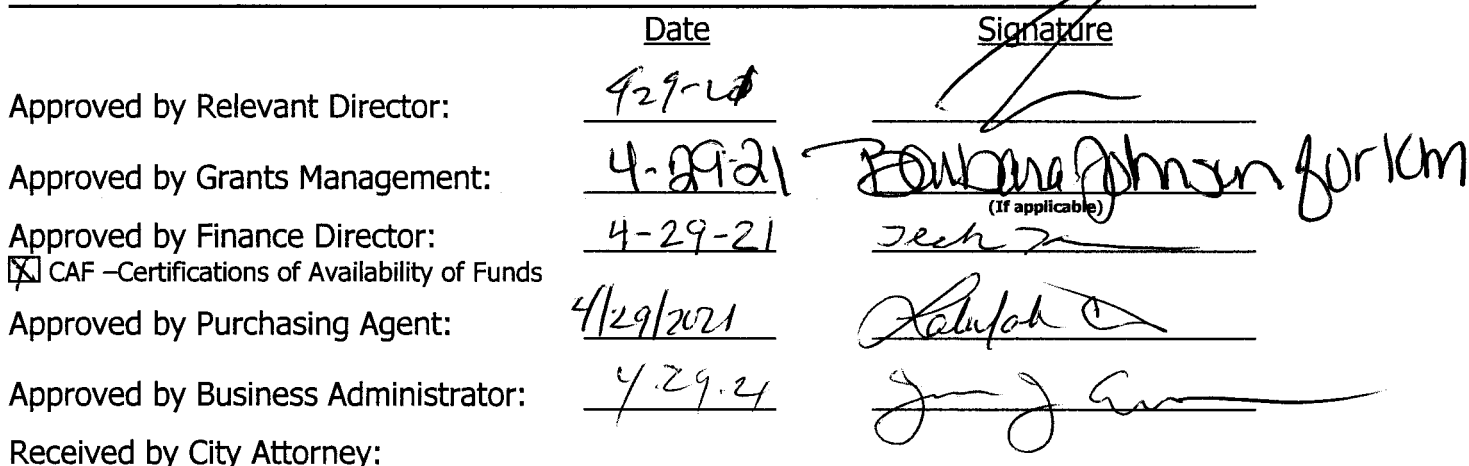 Date Signature
Approved by Relevant Director:
Approved by Grants Management: 4-29-21 Barbara Johnson for KM
(If applicable)
Approved by Finance Director: 4-29-21
☒ CAF –Certifications of Availability of Funds
Approved by Purchasing Agent: 4/29/2021
Approved by Business Administrator: 4.29.21
Received by City Attorney: